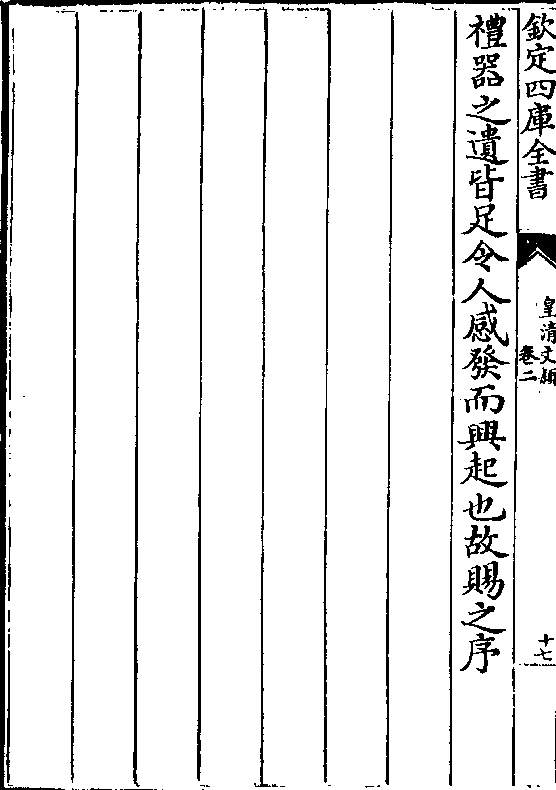 欽定四庫全書
皇清文穎
卷二
十七
禮器之遺皆足令人感發而興起也故賜之序